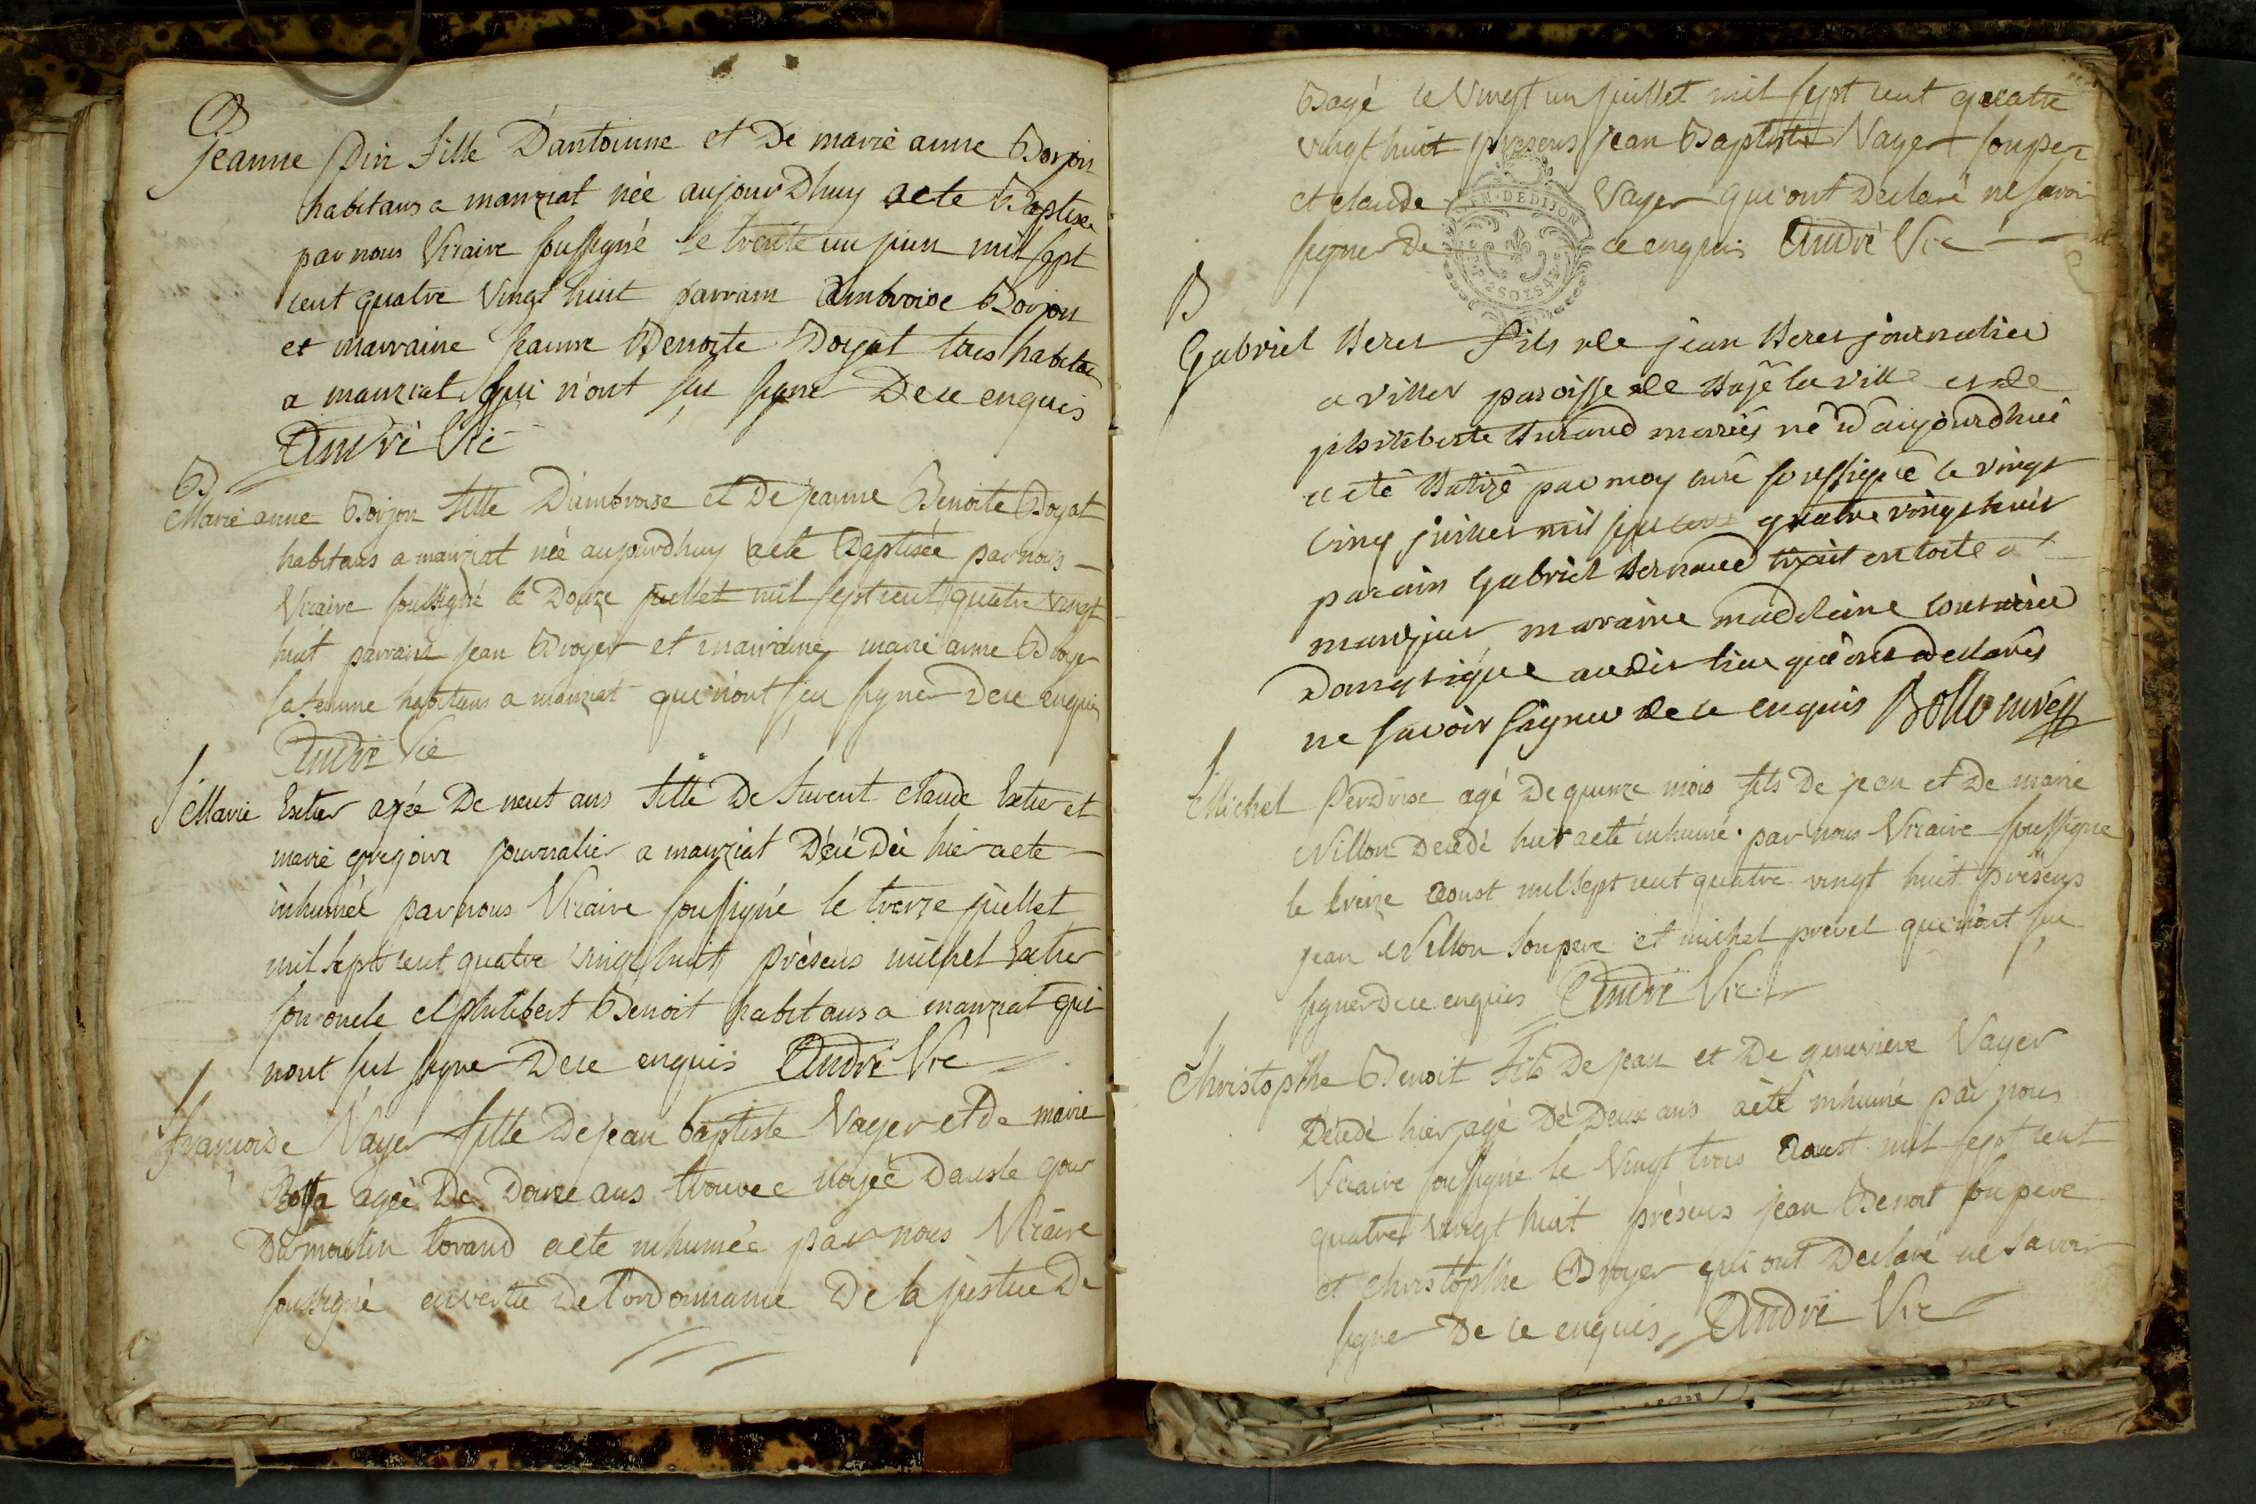 B
jeanne Pin fille D'antoinne et De marie anne Borjon
habitans a manziat née aujourdhuy aete Baptisee
par nous Vicaire soussigné le trente un juin mil sept
cent quatre vingt huit parrain ambroise Borjon
et marraine jeanne Benoite Boyat tous habitans
a manziat qui n'ont su signer De ce enquis
André Vic
B
Marie anne Borjon fille D'ambroise et De jeanne Benoite Boyat
habitans a manziat née aujourdhuy aeté Baptisée par nous
Vicaire soussigné le Douze juillet mil sept cent quatre vingt
huit parrain jean Broyer et marraine marie anne Broyer
sa femme habitans a manziat qui n'ont sçu signer De ce enquis
André Vic
S
Marie Extier agée De neuf ans fille De fuvent claude Extier et
marie gregoire journalier a manziat Décédée hier aete
inhumée par nous Vicaire soussigné le treize juillet
mil sept cent quatre vingt huit présens michel Extier
son oncle et philibert Benoit habitans a manziat qui
n'ont sut signer De ce enquis André Vic
S
françoise Vayer fille De jean baptiste Vayer et de marie
agée De Douze ans trouvée noyée Dans le gour
Du moulin torand aete inhumée par nous Vicaire
soussigné en vertu De l'ordonnance De la justice De
Bagé le Vingt un juillet mil sept cent quatre
vingt huit presens jean Baptiste Vayer son per
et claude Vayer qui ont Declaré ne savoir
signer De ce enquis André Vic
GEN. DE DIJON
B
Gabriel Beret fils de jean Beret journalier
a villes paroisse de Bajé la ville et de
philiberte Durand mariés né d'aujourdhui
a eté Batizé par moy curé soussigné le vingt
cinq juillet mil sept cent quatre vingt huit
parain Gabriel Bernaud en toile a
manziat maraine madeleine couturier
Domestique audit lieu qui ont declarés
ne savoir signer de ce enquis Bollo curé
S
Michel Perdrise agé De quinze mois fils De jean et De marie
Villon Decedé hier aeté inhumé par nous Vicaire soussigne
le treize aoust mil sept cent quatre vingt huit présens
jean Villon son pere et michel prevel qui n'ont su
signer De ce enquis André Vic
S
Christophe Benoit fils De jean et De genevieve Vayer
Decedé hier agé De Deux ans aété inhumé par nous
Vicaire soussigné le Vingt trois aoust mil sept cent
quatre vingt huit présens jean Benoit son pere
et christophe Broyer qui ont Declaré ne savoir
signer De ce enquis André Vic